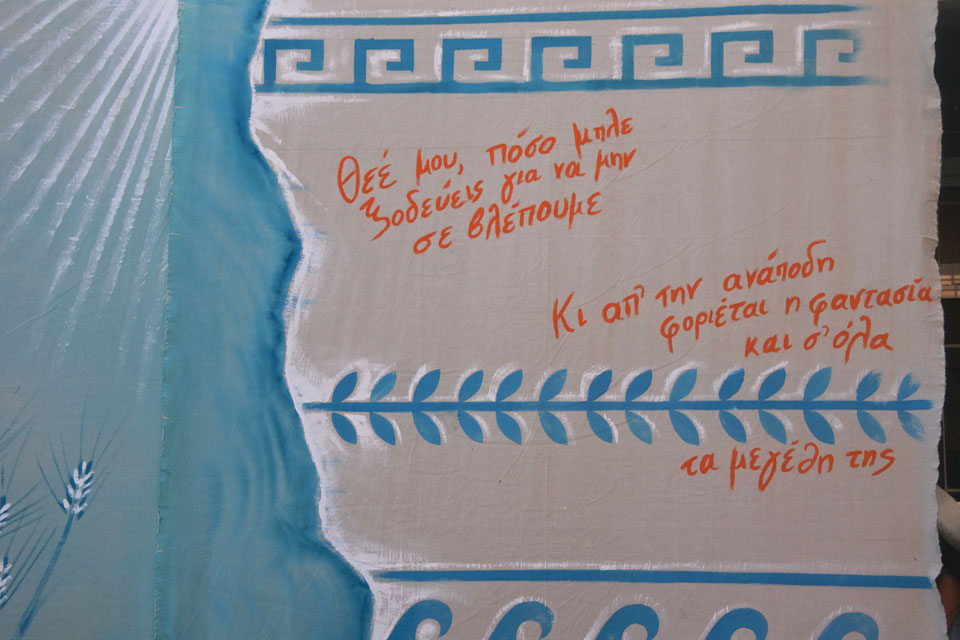 Θεέ μου, πόσο μπλε
ξοδεύεις για να μην
σε βλέπουμε
Κι απ' την ανάποδη
φοριέται η φαντασία
και σ' όλα
τα μεγέθη της